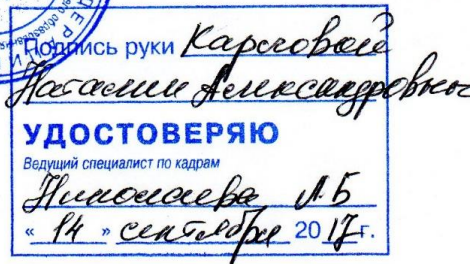 Подпись руки Карповой
Наталии Александровны
УДОСТОВЕРЯЮ
Ведущий специалист по кадрам
Николаева Л.Б
« 14 » сентября 2017г.